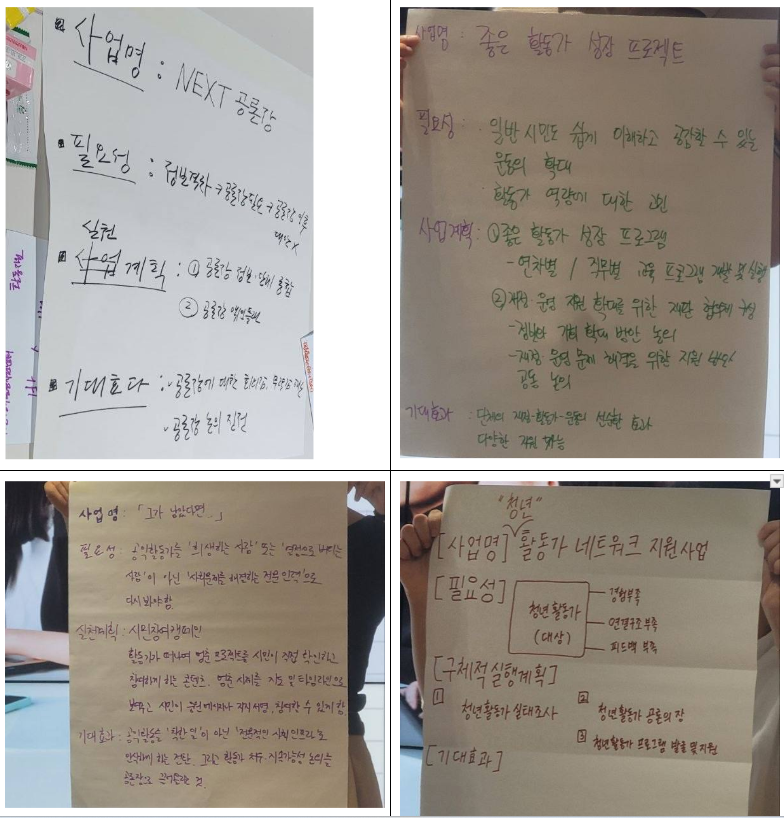 사업명 : NEXT 공론장
필요성 : 정보격차 → 공론장 필요 → 공론장 이후
대안 X
실천
사업계획 : ① 공론장 정보·단체 통합
② 공론장
기대효과 : · 공론장에 대한 회의감,
· 공론장 논의 진전
사업명 : 좋은 활동가 성장 프로젝트
필요성 : · 일반 시민도 쉽게 이해하고 공감할 수 있는
운동의 확대
· 활동가 역량에 대한 고민
사업계획 : ① 좋은 활동가 성장 프로그램
- 연차별 / 직무별 교육 프로그램 개발 및 실행
② 재정·운영 지원 확대를 위한 재단 협의체 구성
- 기회 확대 방안 논의
- 재정·운영 문제 해결을 위한 지원 방안
공동 논의
기대효과 : 단체의 재정·활동가·운동의 선순환 효과
다양한 지원 가능
사업명 : 「그가 남았다면...」
필요성 : 공익활동가를 '희생하는 사람' 또는 '열정으로 버티는
사람'이 아닌 '사회문제를 해결하는 전문인력'으로
다시 봐야 함
실천계획 : 시민참여캠페인
활동가가 떠나며 멈춘 프로젝트를 시민이 직접 확인하고
참여하게 하는 콘텐츠. 멈춘 의제를 지도 및 타임라인으로
보여주고 시민이 응원 메시지나 지지서명, 참여할 수 있게 함
기대효과 : 공익활동을 '착한 일'이 아닌 '필수적인 사회 인프라'로
인식하게 하는 전환. 그리고 활동가 처우·지속가능성 논의를
공론장으로 끌어올리는 것.
"청년"
[사업명] 활동가 네트워크 지원사업
[필요성] 청년 활동가 (대상)
경험부족
연결구조 부족
피드백 부족
[구체적 실행계획]
1 청년활동가 실태조사
2 청년활동가 공론의 장
3 청년활동가 프로그램 발굴 및 지원
[기대효과]